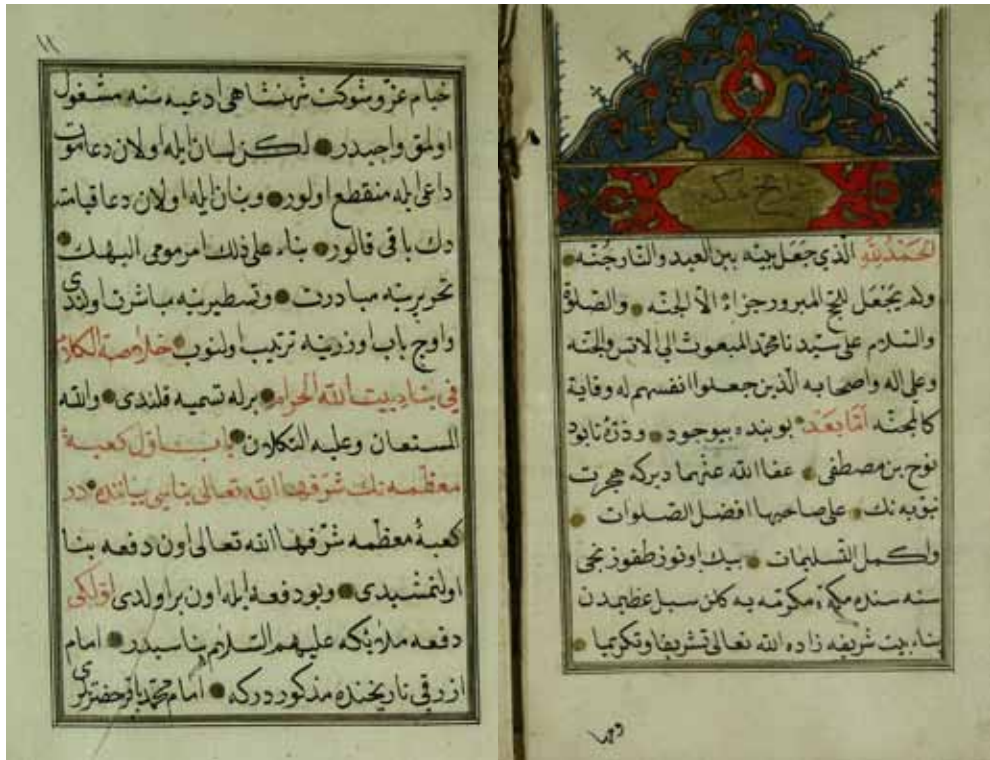 تاريخ مكه
الحمد لله الذى جعل بيته بين العبد والنار جنه
ولم يجعل للحج المبرور جزاء الا الجنه والصلوة
والسلام على سيدنا محمد المبعوث الى الانس والجنه
وعلى اله واصحابه الذين جعلوا انفسهم له وقاية
كالمجنه اما بعد بو بنده بيوجود وذرۀ نابود
نوح بن مصطفى عفا الله عنهما ديركه هجرت
نبويه نك على صاحبها افضل الصلوات
واكمل التسليمات بيك اوتوز طقوز نجى
سنه سنده مكۀ مكرمه يه كلن سيل عظيمدن
بناء بيت شريفه زاده الله تعالى تشريفا وتكريما
خيام عز وشوكت شهنشاهى ادعيه سنه مشغول
اولمق واجبدر لكن لسان ايله اولان دعا موت
داعى ايله منقطع اولور وبنان ايله اولان دعا قيامته
دك باقى قالور بناء على ذلك امر مومى اليهك
تحريرينه مبادرت وتسطيرينه مباشرت اولندى
واوج باب اوزرينه ترتيب اولنوب خلاصة الكلام
فى بناء بيت الله الحرام برله تسميه قلندى والله
المستعان وعليه التكلان باب اول كعبۀ
معظمه نك شرفها الله تعالى بناسى بياننده در
كعبۀ معظمه شرفها الله تعالى اون دفعه بنا
اولنمشيدى وبو دفعه ايله اون بر اولدى اولكى
دفعه ملائكه عليهم السلام بناسيدر امام
ازرقى تاريخنده مذكور دركه امام محمد باقر حضرتلرى